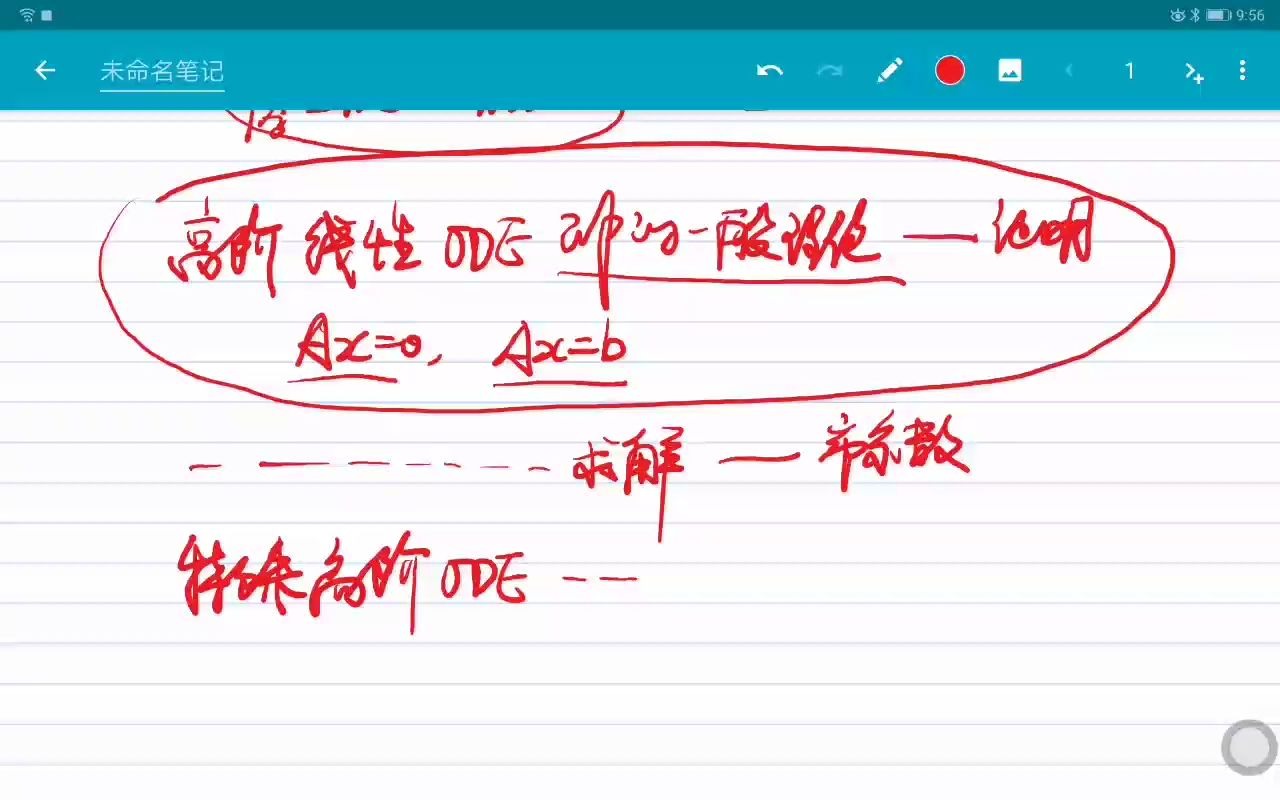 9:56
未命名笔记
1
高阶线性ODE 的一般理论 — 证明
Ax=0, Ax=b
求解 — 常系数
特殊高阶ODE